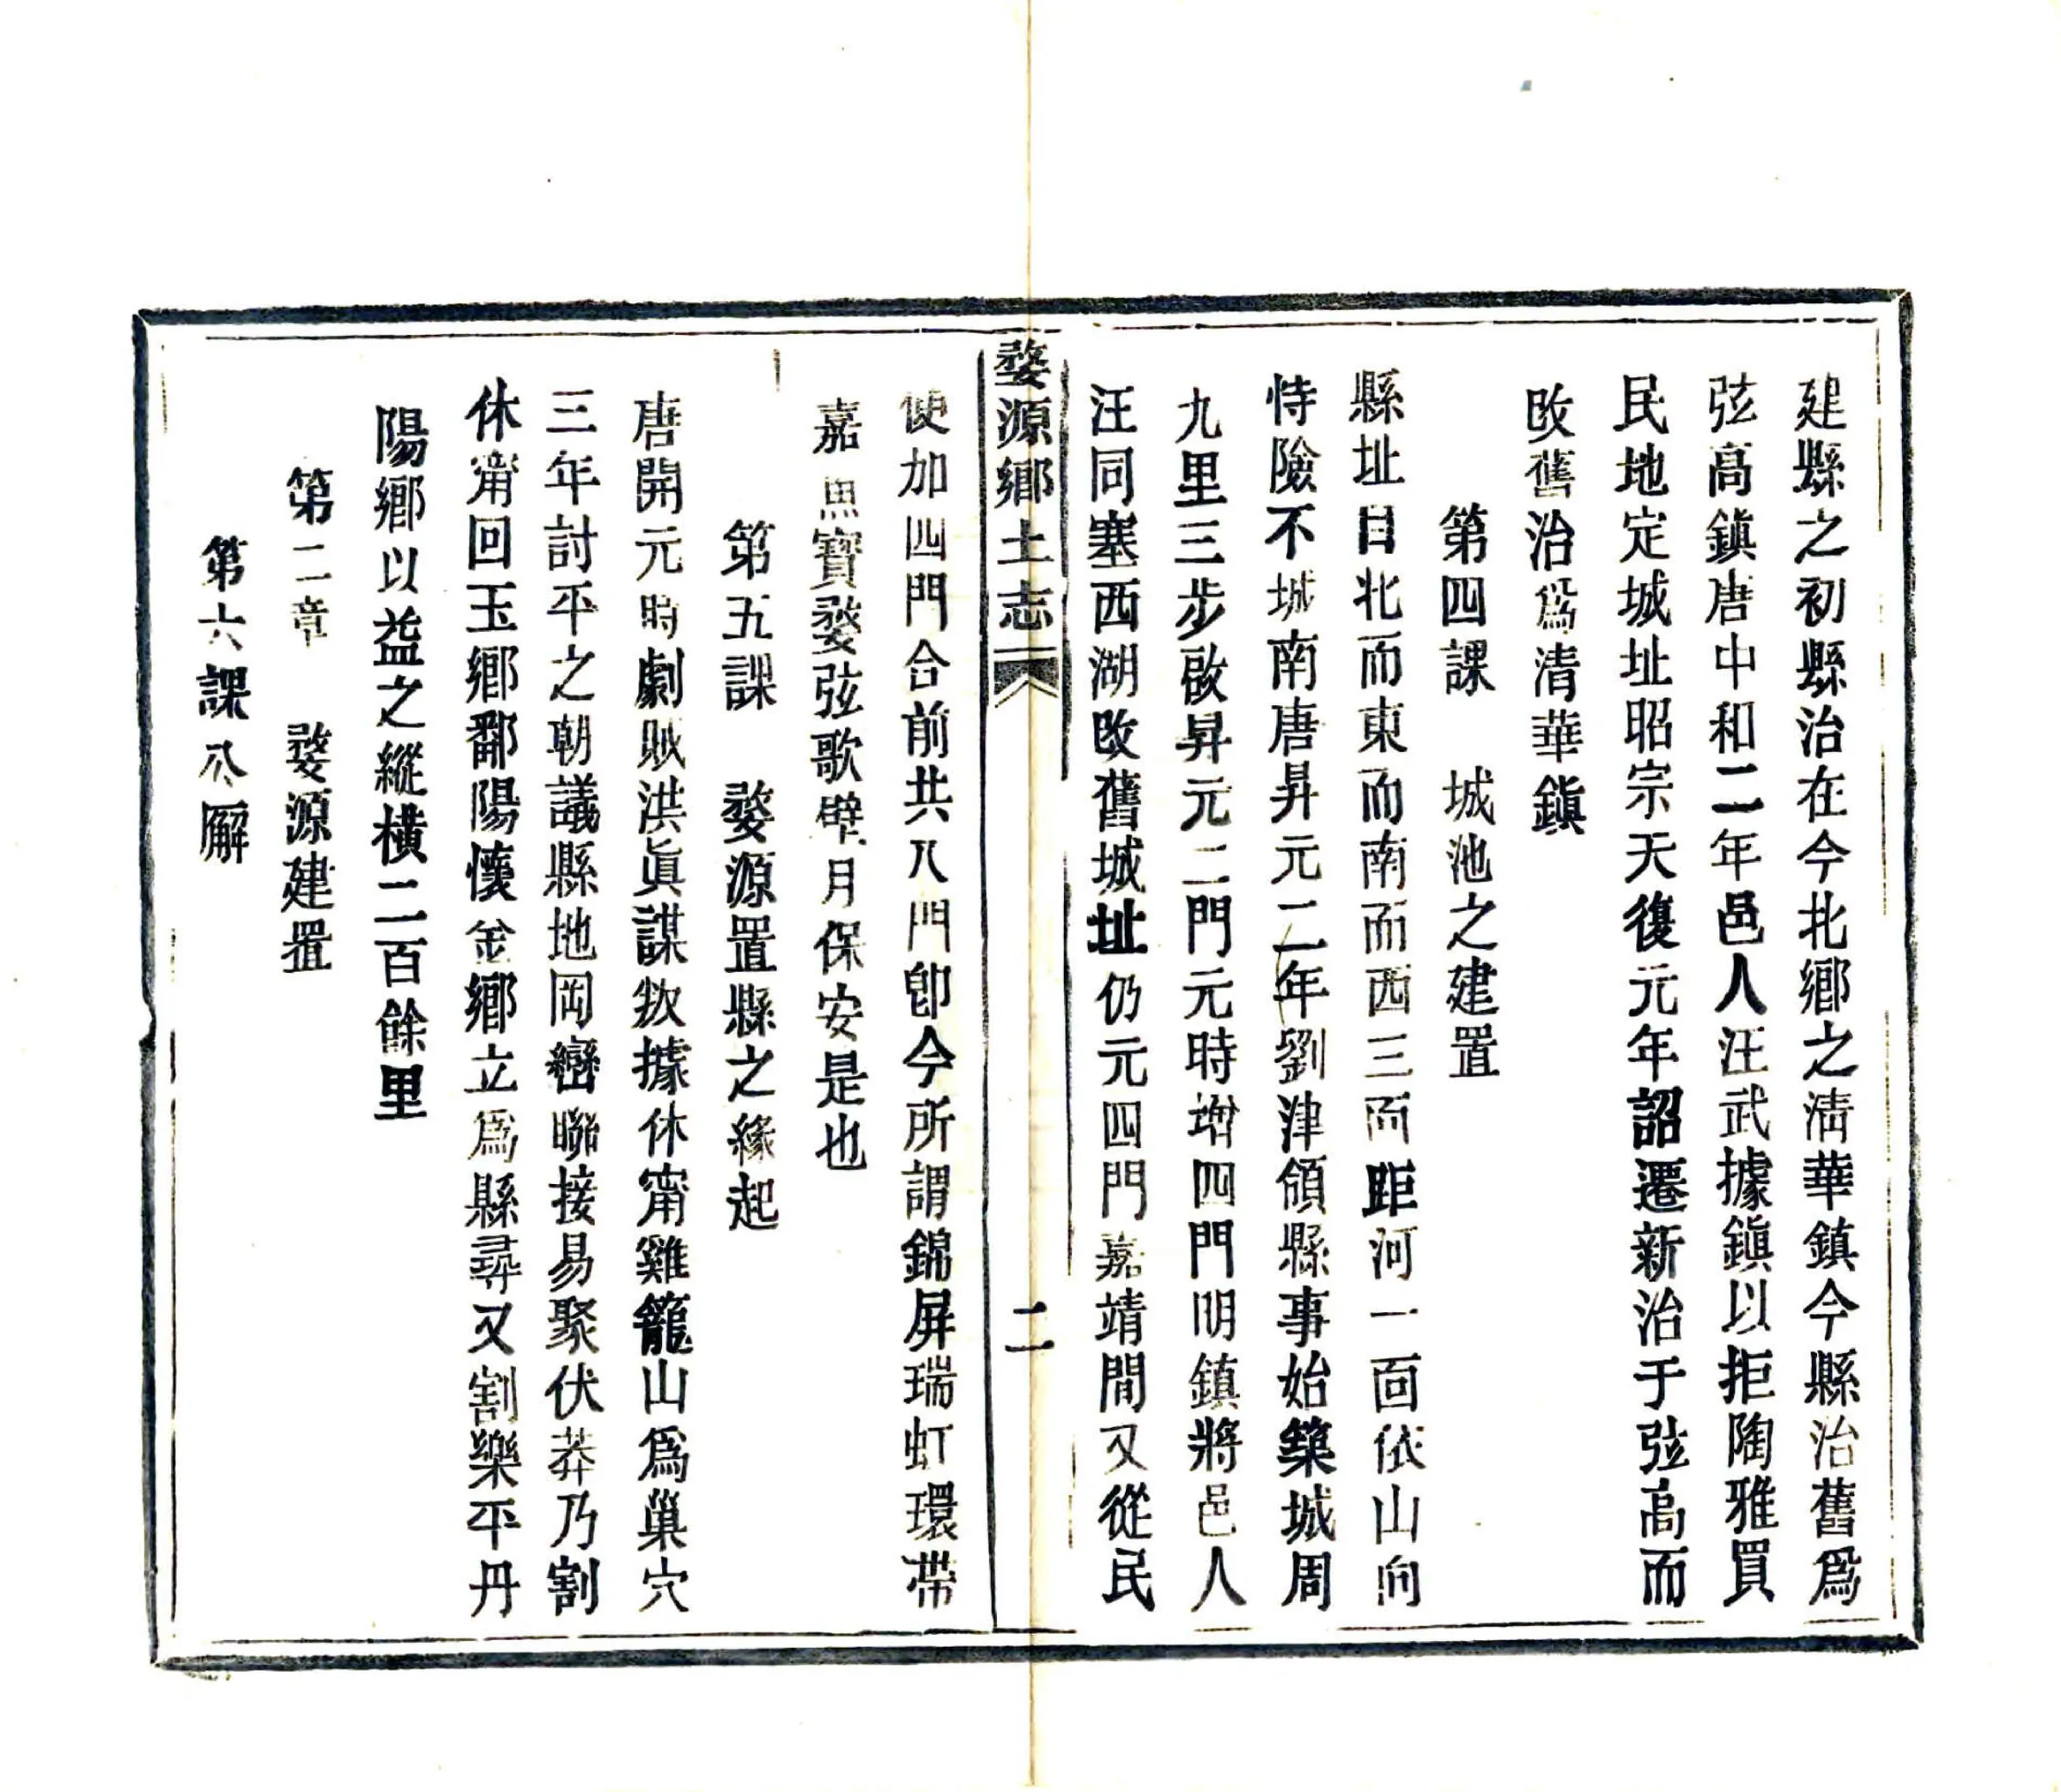 建縣之初縣治在今北鄉之清華鎮今縣治舊爲
弦高鎭唐中和二年邑人汪武據鎭以拒陶雅買
民地定城址昭宗天復元年詔遷新治于弦高而
改舊治爲清華鎭
第四課 城池之建置
縣址自北而東而南而西三面距河一面依山向
恃險不城南唐昇元二年劉津領縣事始築城周
九里三步啟昇元二門元時增四門明鎮將邑人
汪同塞西湖改舊城址仍元四門嘉靖間又從民
婺源鄉土志 二
便加四門合前共八門卽今所謂錦屏瑞虹環帶
嘉魚寶婺弦歌壁月保安是也
第五課 婺源置縣之緣起
唐開元時劇賊洪眞謀叛據休甯雞籠山爲巢穴
三年討平之朝議縣地岡巒聯接易聚伏莽乃割
休甯回玉鄉鄱陽懷金鄉立爲縣尋又割樂平丹
陽鄉以益之縱橫二百餘里
第二章 婺源建置
第六課 分廨